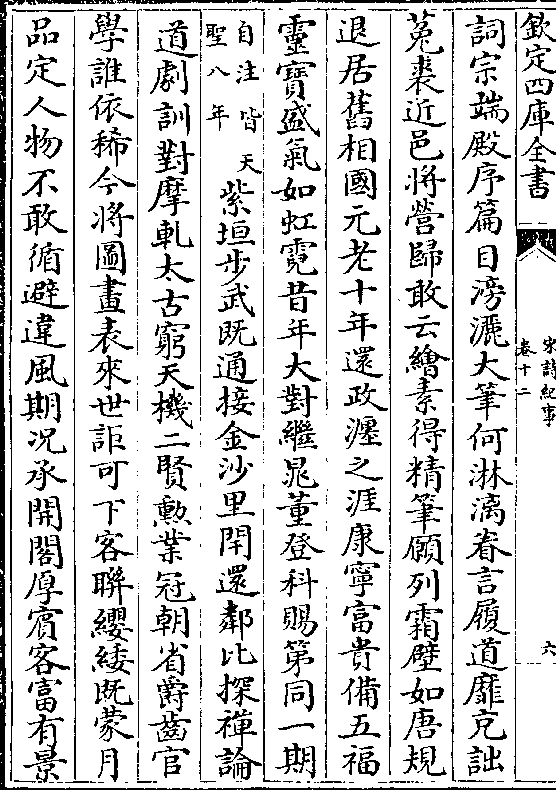 欽定四庫全書
宋詩紀事
卷十二
六
詞宗端殿序篇目滂灑大筆何淋漓眷言履道靡克詘
菟裘近邑將營歸敢云繪素得精筆願列霜壁如唐規
退居舊相國元老十年還政瀍之涯康寧富貴備五福
靈寳盛氣如虹霓昔年大對繼晁董登科賜第同一期
自注皆天
聖八年
紫垣步武既通接金沙里閈還鄰比探禪論
道劇訓對摩軋太古窮天機二賢勲業冠朝省爵齒官
學誰依稀今將圖畫表來世詎可下客聯纓緌既蒙月
品定人物不敢循避違風期况承開閣厚賓客富有景